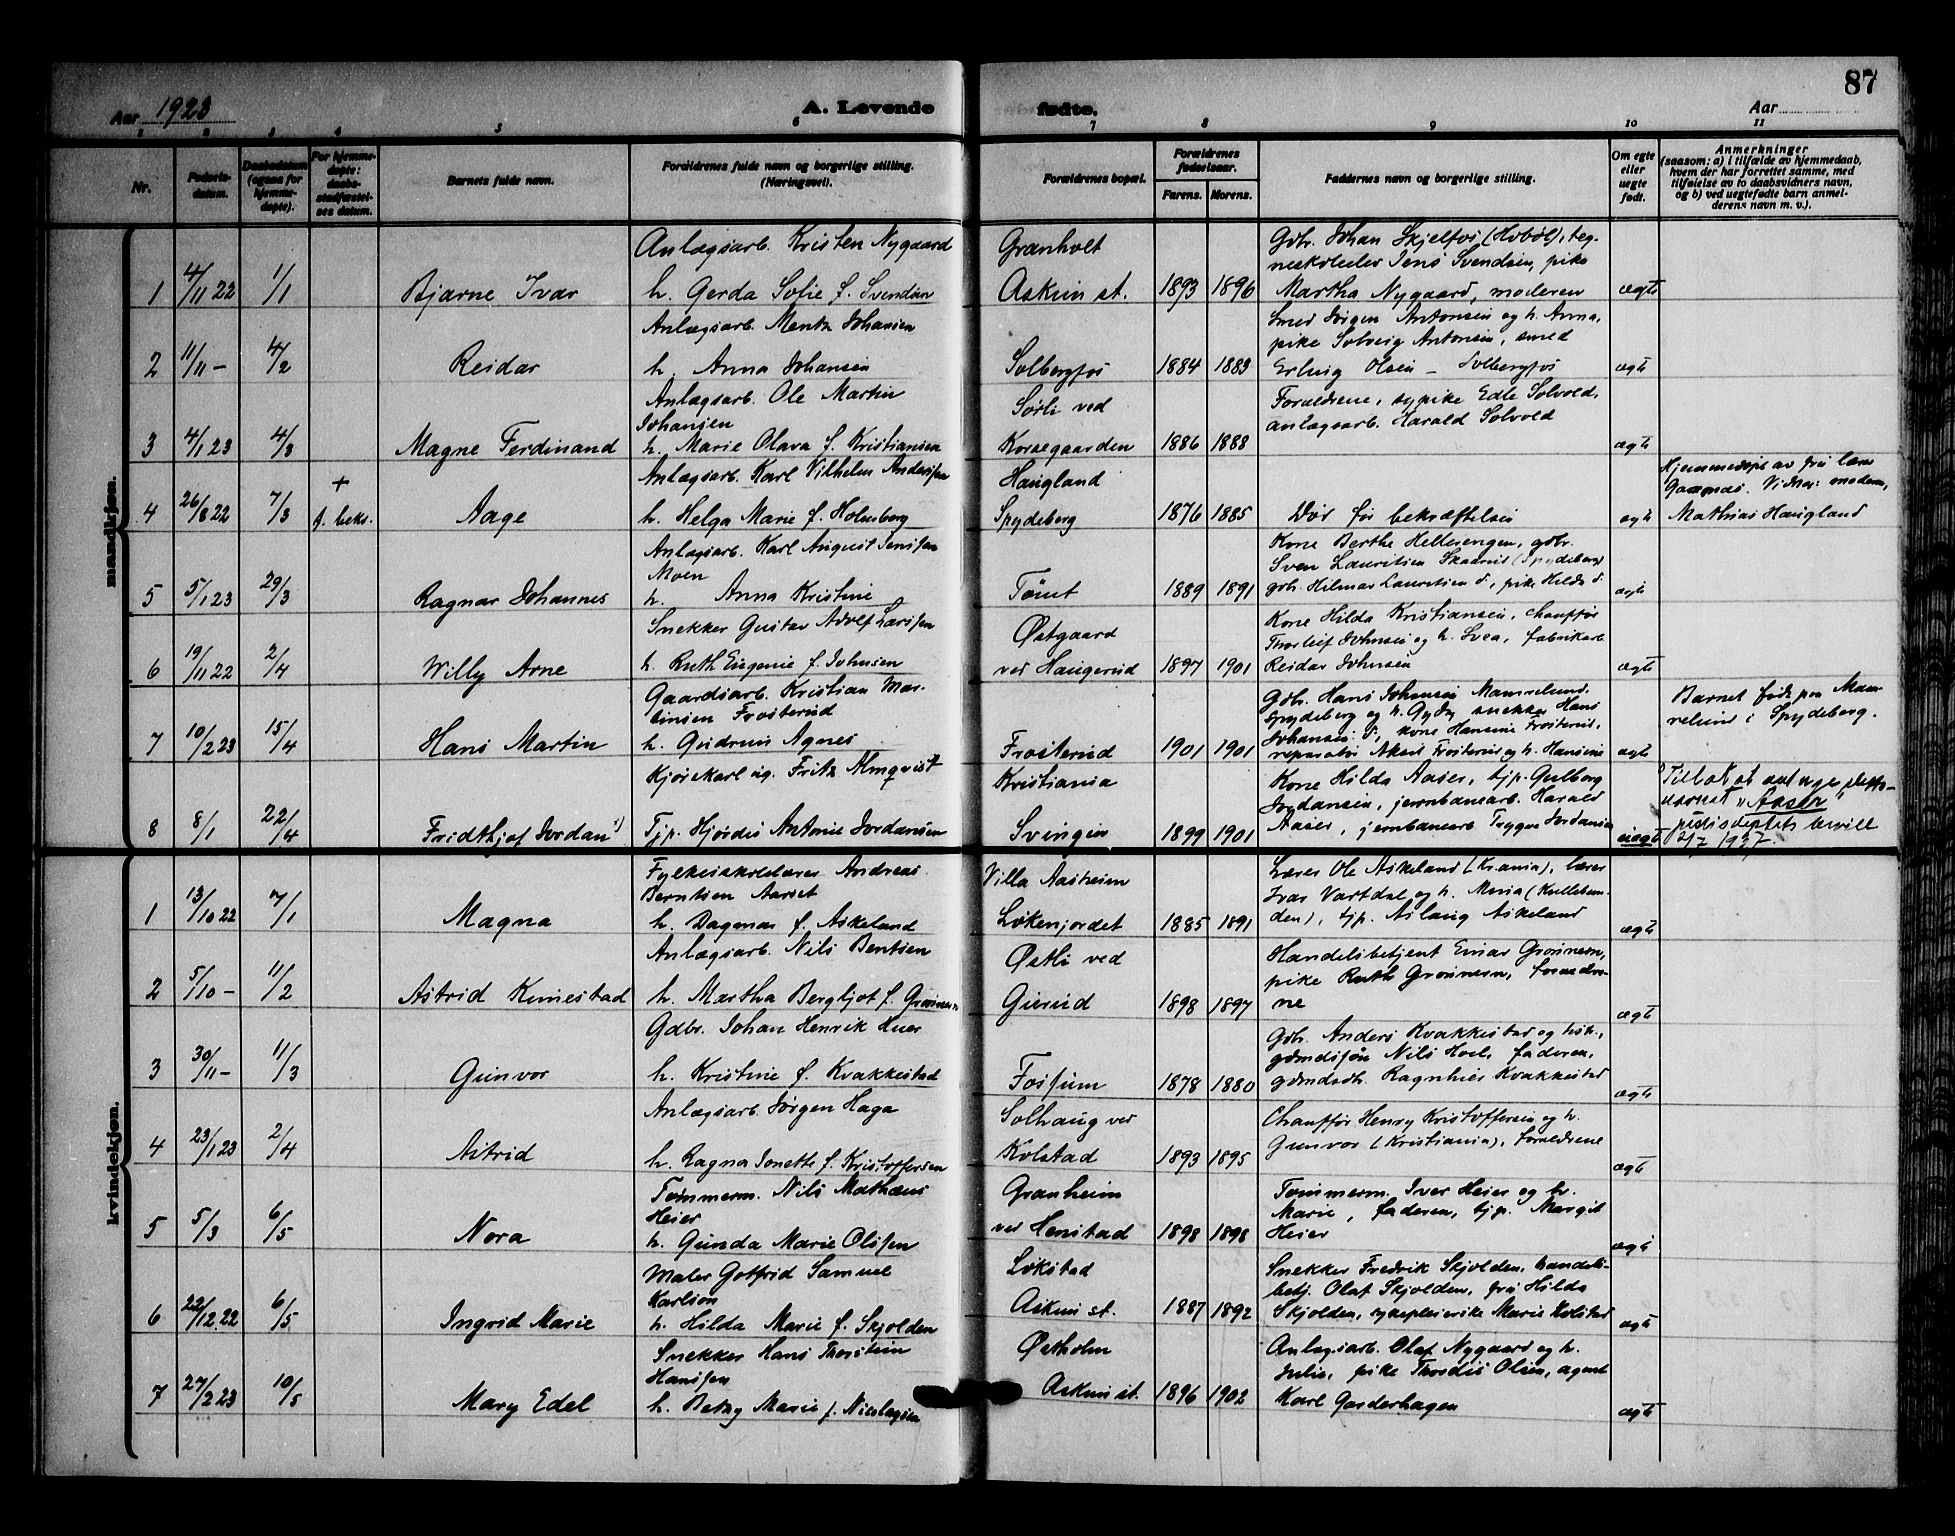 87
Aar 1923
A. Levende
fødte.
Aar
1 2 3 4 5 6 7 8 9 10 11
Nr.
Fødsels-
datum.
Daabsdatum
(ogsaa for
hjemme-
døpte).
For hjemme-
døpte:
daabs-
stadfæstel-
ses datum.
Barnets fulde navn.
Forældrenes fulde navn og borgerlige stilling.
(Næringsvei).
Forældrenes bopæl.
Forældrenes
fødselsaar.
Farens. Morens.
Faddernes navn og borgerlige stilling.
Om egte
eller
uegte
født.
Anmerkninger
(saasom: a) i tilfælde av hjemmedaab,
hvem der har forrettet samme, med
tilføielse av to daabsvidners navn,
og b) ved uegtefødte barn anmel-
derens navn m. v.).
mandkjøn.
1 4/11 22 1/1 Bjarne Ivar
Anlægsarb. Kristen Nygaard
h. Gerda Sofie f. Svendsen
Granholt
Askim st. 1893 1896
Gdbr. Johan Skjelfos (Hobøl), teg-
neskoleelev Jens Svendsen, pike
Martha Nygaard, moderen ægte
2 11/11 - 4/2 Reidar
Anlægsarb. Mentz Johansen
h. Anna Johansen
Solbergfos 1884 1883
Smed Jørgen Antonsen og h. Anna,
pike Solveig Antonsen, smed
Erling Olsen - Solbergfos ægte
3 4/1 23 4/3 Magne Ferdinand
Anlægsarb. Ole Martin
Johansen
h. Marie Olava f. Kristiansen
Sørli ved
Korsegaarden 1886 1888
Forældrene, sypike Edle Solvold,
anlægsarb. Harald Solvold
ægte
4 26/8 22 7/3 + f. bekr. Aage
Anlægsarb. Karl Vilhelm Andersen
h. Helga Marie f. Holmberg
Haugland
Spydeberg 1876 1885
Død før bekræftelsen ægte
Hjemmedøpt av frk. lærer
Vidner: moderen,
Mathias Haugland
5 5/1 23 29/3 Ragnar Johannes
Anlægsarb. Karl August Jensen
Moen
h. Anna Kristine
Tømt 1889 1891
Kone Berthe Hellerengen, gdbr.
Sven Lauritsen (Spydeberg)
gdbr. Hilmar Lauritsen d., pike Hilda d. ægte
6 19/11 22 2/4 Willy Arne
Snekker Gustav Adolf Larsen
h. Ruth Eugenie f. Johnsen
Østgaard
ved Haugerud 1897 1901
Kone Hilda Kristiansen, chauffør
Thorleif Johnsen og h. Svea, fabrikarb.
Reidar Johnsen ægte
7 10/2 23 15/4 Hans Martin
Gaardsarb. Kristian Mar-
tinsen Frosterud
h. Gudrun Agnes
Frosterud 1901 1901
Gdbr. Hans Johansen Mamrelund,
Spydeberg og h. Gyda, snekker Hans
Johansen d., kone Hansine Frosterud,
reparatør Aksel Frosterud og h. Hansine ægte
Barnet født paa Mam-
relund i Spydeberg.
8 8/1 22/4 Fridthjof Jordan 1)
Kjørekarl ug. Fritz Almqvist
Tjp. Hjørdis Antonie Jordansen
Kristiania
Svingen 1899 1901
Kone Hilda Aaser, tjp. Gulborg
Jordansen, jernbanearb. Harald
Aaser, jernbanearb. Trygve Jordansen uægte
1) Tillatt at anta
"Aaser"
bevill.
1937.
kvindekjøn.
1 13/10 22 7/1 Magna
Fylkesskolelærer Andreas
Berntsen Aarset
h. Dagmar f. Askeland
Villa Aasheim
Løkenjordet 1885 1891
Lærer Ole Askeland (Krania), lærer
Ivar Vartdal og h. Maria (Kullebun-
den), tjp. Aslaug Askeland ægte
2 5/10 - 11/2 Astrid Kimestad
Anlægsarb. Nils Bentsen
h. Martha Bergljot f. Grønnern
Østli ved
Gierud 1898 1897
Handelsbetjent Einar Grønnern,
pike Ruth Grønnern, forældre-
ne ægte
3 30/11 - 11/3 Gunvor
Gdbr. Johan Henrik Huer
h. Kristine f. Kvakkestad
Fossum 1878 1880
Gdbr. Anders Kvakkestad og hstr.,
gdmdsøn Nils Hoel, faderen,
gdmdsdtr. Ragnhild Kvakkestad ægte
4 23/1 23 2/4 Astrid
Anlægsarb. Jørgen Haga
h. Ragna Jonette f. Kristoffersen
Solhaug ved
Kolstad 1893 1895
Chauffør Henry Kristoffersen og h.
Gunvor (Kristiania), forældrene
ægte
5 5/3 6/5 Nora
Tømmerm. Nils Mathæus
Heier
h. Gunda Marie Olsen
Granheim
ved Henstad 1898 1898
Tømmerm. Iver Heier og h.
Marie, faderen, tjp. Margit
Heier ægte
6 22/12 22 6/5 Ingrid Marie
Maler Gotfrid Samuel
Karlson
h. Hilda Marie f. Skjolden
Løkstad
Askim st. 1887 1892
Snekker Fredrik Skjolden, handels-
betj. Olaf Skjolden, frk Hilda
Skjolden, sykepleierske Marie Kolstad ægte
7 27/2 23 10/5 Mary Edel
Snekker Hans Thorstein
Hansen
h. Betzy Marie f. Nicolaysen
Østholm
Askim st. 1896 1902
Anlægsarb. Olaf Nygaard og h.
Julie, pike Thordis Olsen, agent
Karl Garderhagen ægte